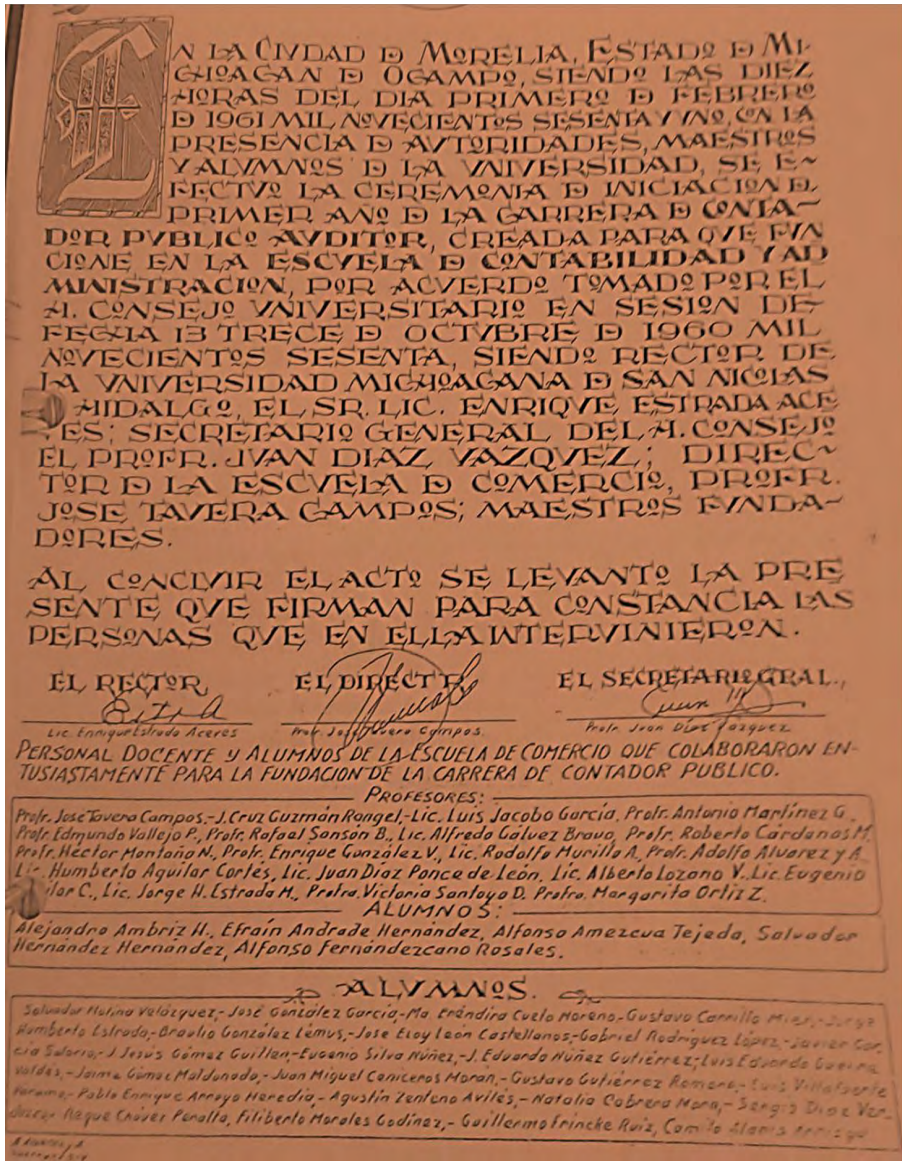 EN LA CIVDAD D MORELIA, ESTADO D MI-
CHOACAN D OCAMPO, SIENDO LAS DIEZ
HORAS DEL DIA PRIMERO D FEBRERO
D 1961 MIL NOVECIENTOS SESENTA Y VNO, CON LA
PRESENCIA D AVTORIDADES, MAESTROS
Y ALVMNOS D LA VNIVERSIDAD, SE E-
FECTVO LA CEREMONIA D INICIACION D.
PRIMER AÑO D LA CARRERA D CONTA-
DOR PVBLICO AVDITOR, CREADA PARA QVE FVN
CIONE EN LA ESCVELA D CONTABILIDAD Y AD
MINISTRACION, POR ACVERDO TOMADO POR EL
H. CONSEJO VNIVERSITARIO EN SESION DE-
FECHA 13 TRECE D OCTVBRE D 1960 MIL
NOVECIENTOS SESENTA, SIENDO RECTOR DE
LA VNIVERSIDAD MICHOACANA D SAN NICOLAS
HIDALGO, EL SR. LIC. ENRIQVE ESTRADA ACE-
VES; SECRETARIO GENERAL DEL H. CONSEJO
EL PROFR. JVAN DIAZ VAZQVEZ; DIREC-
TOR D LA ESCVELA D COMERCIO, PROFR.
JOSE TAVERA CAMPOS; MAESTROS FVNDA-
DORES.
AL CONCLVIR EL ACTO SE LEVANTO LA PRE
SENTE QVE FIRMAN PARA CONSTANCIA LAS
PERSONAS QVE EN ELLA INTERVINIERON.
EL RECTOR, EL DIRECTOR EL SECRETARIO GRAL.,
Lic. Enrique Estrada Aceves Profr. José Tavera Campos. Profr. Juan Díaz Vazquez
PERSONAL DOCENTE y ALUMNOS DE LA ESCUELA DE COMERCIO QUE COLABORARON EN-
TUSIASTAMENTE PARA LA FUNDACION DE LA CARRERA DE CONTADOR PUBLICO.
PROFESORES:
Profr. José Tavera Campos,-J. Cruz Guzmán Rangel,-Lic. Luis Jacobo García, Profr. Antonio Martínez G.,
Profr. Edmundo Vallejo P., Profr. Rafael Sansón B., Lic. Alfredo Gálvez Bravo, Profr. Roberto Cárdenas M.
Profr. Héctor Montaño N., Profr. Enrique González V., Lic. Rodolfo Murillo A., Profr. Adolfo Alvarez y A.
Lic. Humberto Aguilar Cortés, Lic. Juan Díaz Ponce de León, Lic. Alberto Lozano V. Lic. Eugenio
ilar C., Lic. Jorge H. Estrada M., Profra. Victoria Santoyo D. Profra. Margarita Ortiz Z.
ALUMNOS:
Alejandro Ambriz H., Efraín Andrade Hernández, Alfonso Amezcua Tejeda, Salvador
Hernández Hernández, Alfonso Fernándezcano Rosales.
ALVMNOS.
Salvador Molina Velázquez,- José González García,-Ma. Eréndira Cueto Moreno,-Gustavo Carrillo Mier,-Jorge
Humberto Estrada,-Braulio González Lémus,-Jose Eloy León Castellanos,-Gabriel Rodríguez López,-Javier Gar-
cia Solorio,-J. Jesús Gómez Guillen,-Eugenio Silva Núñez,-J. Eduardo Núñez Gutiérrez,-Luis Eduardo
Valdés,-Jaime Gómez Maldonado,-Juan Miguel Caniceros Moran,-Gustavo Gutiérrez Romero,-Luis Villafuerte
Pablo Enrique Arroyo Heredia,-Agustín Zenteno Aviles,-Natalia Cabrera Mora,-Sergio Diaz
Roque Chávez Peralta, Filiberto Morales Godínez,-Guillermo Frincke Ruiz, Camilo Alanis